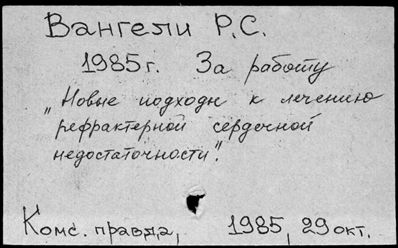 Вангели Р.С.
1985г. За работу
„Новые подходы к лечению
рефрактерной сердечной
недостаточности".
Комс. правда, 1985, 29 окт.